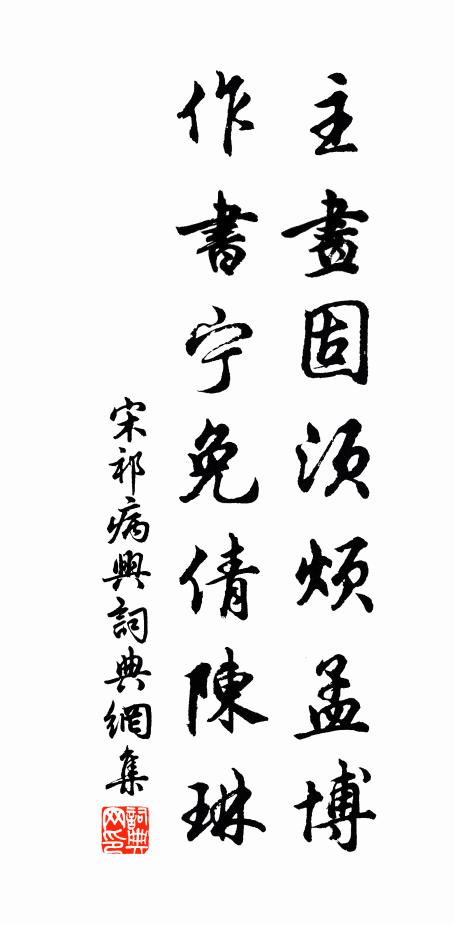 主畫固須煩孟博
作書宁免倩陳琳
宋祁病興詞典網集
詞典網印